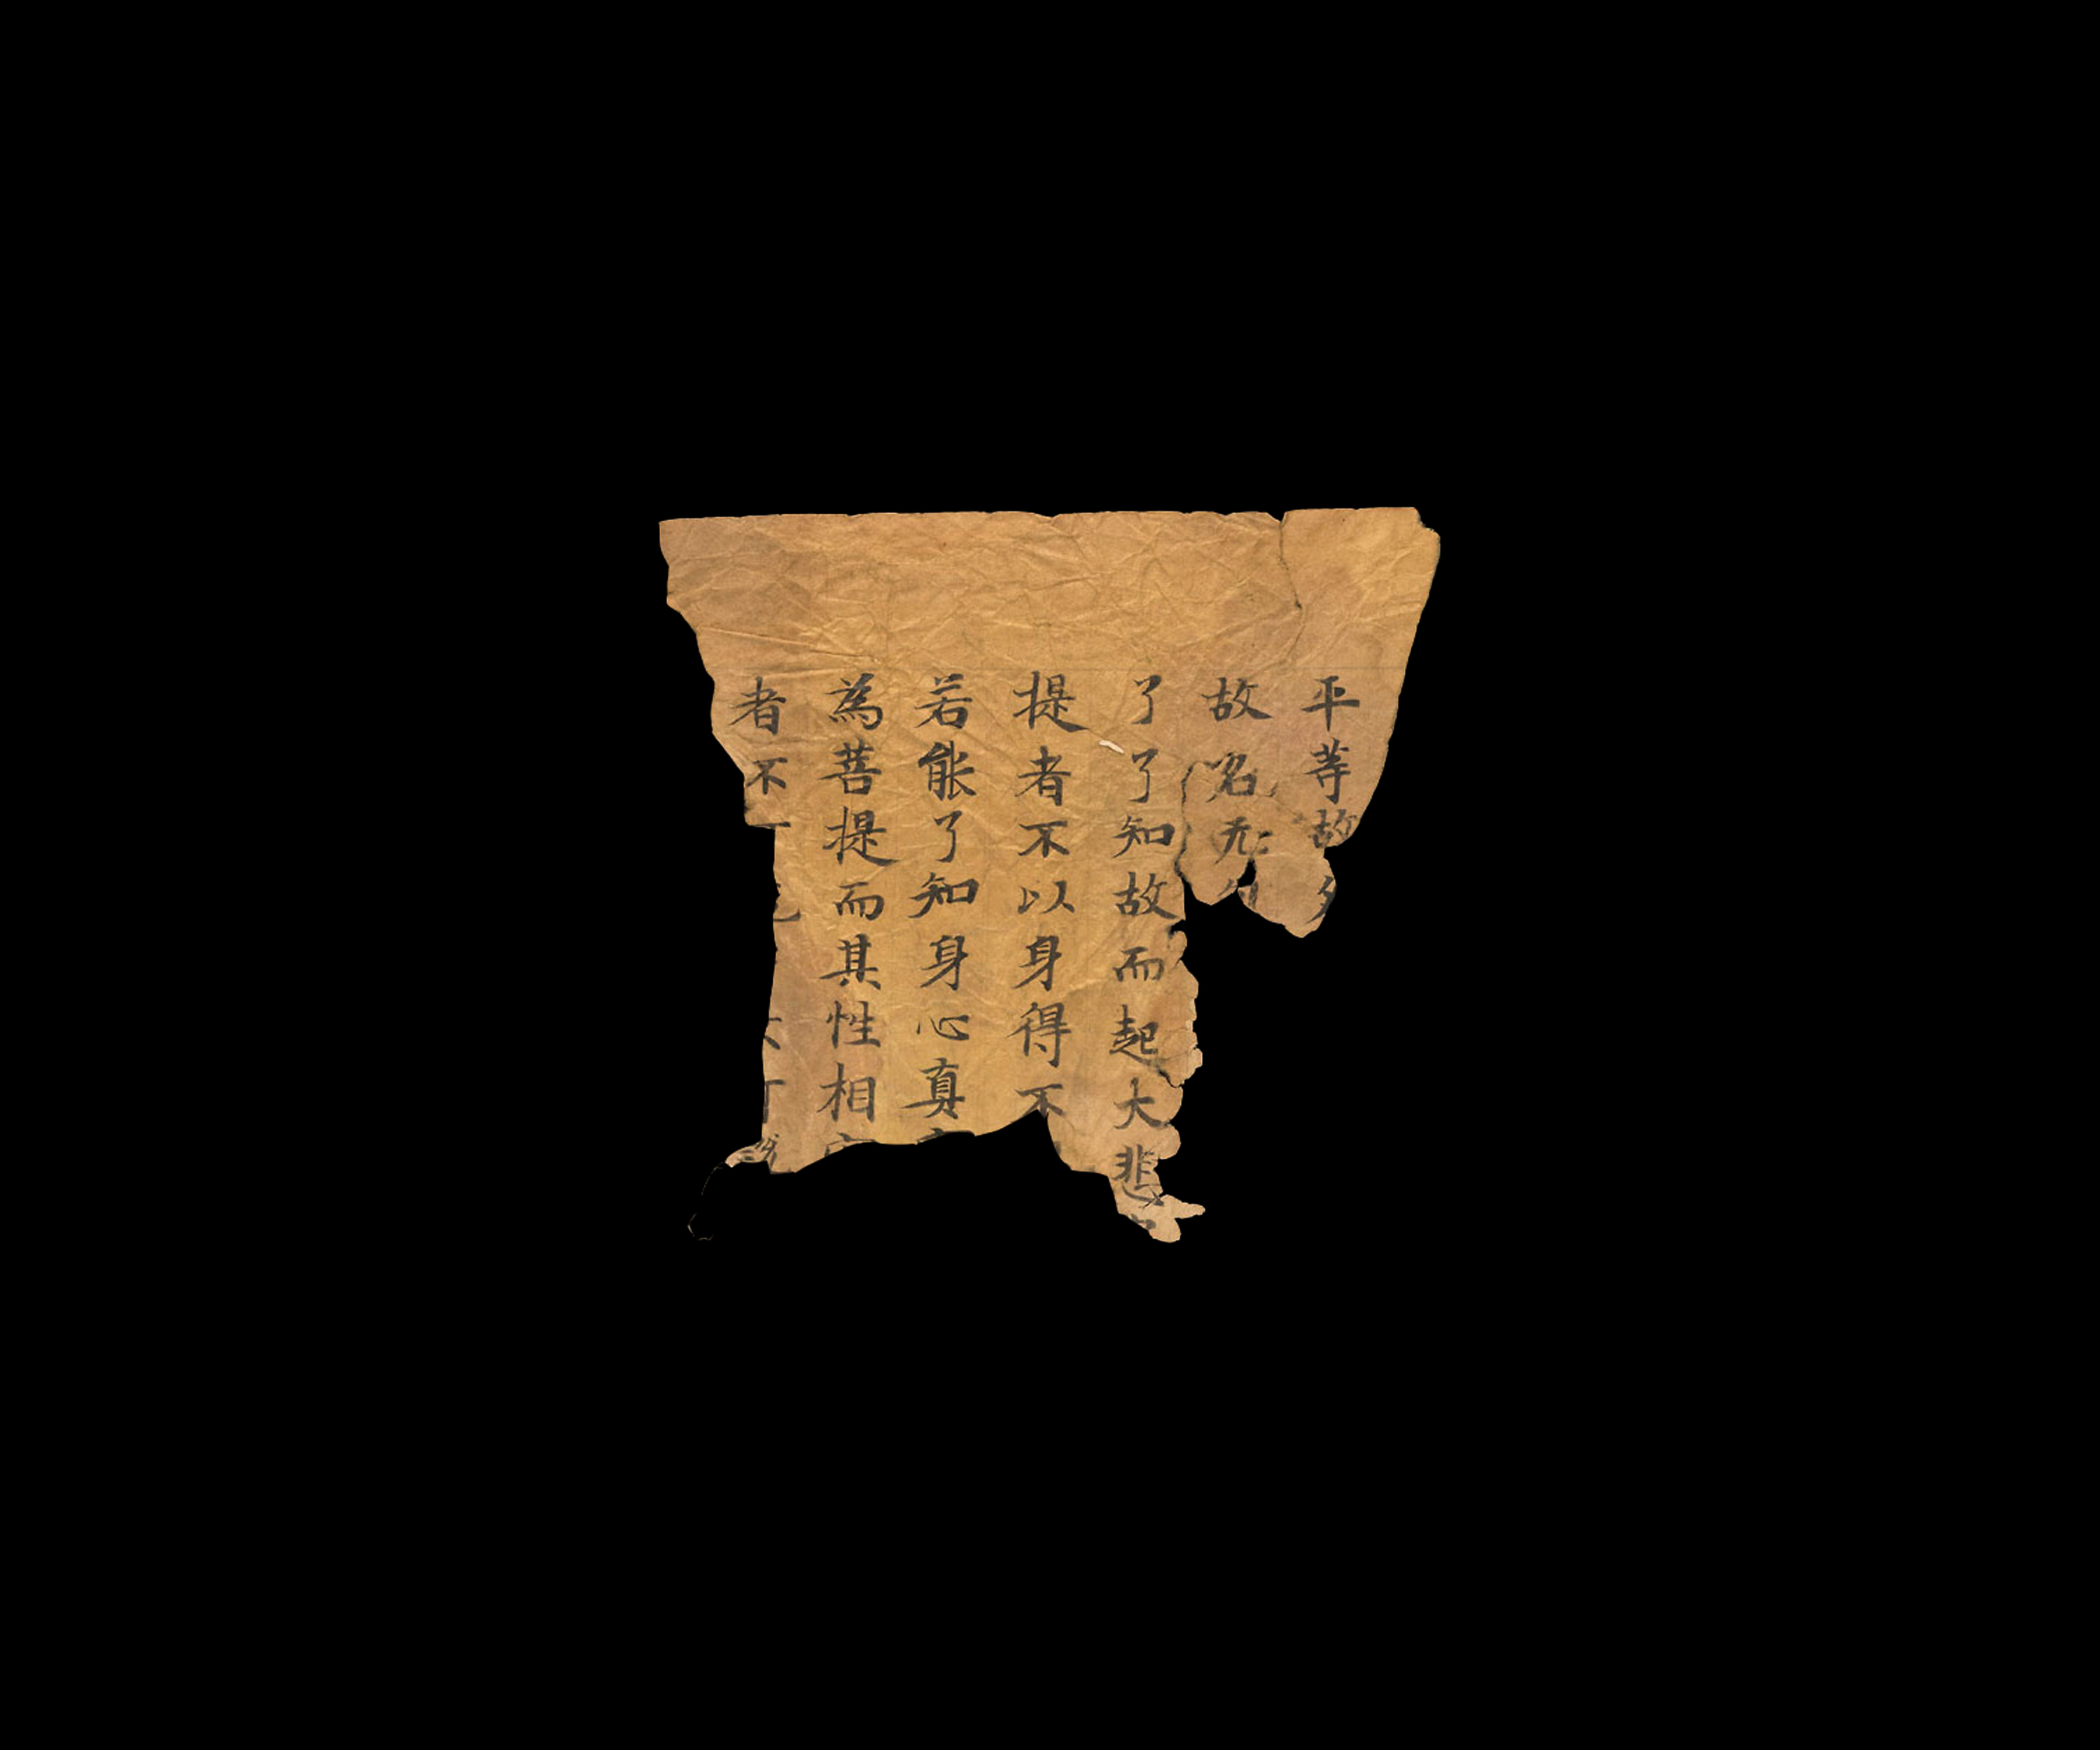 平等故
故名无
了了知故而起大悲
提者不以身得不
若能了知身心真
為菩提而其性相
者不